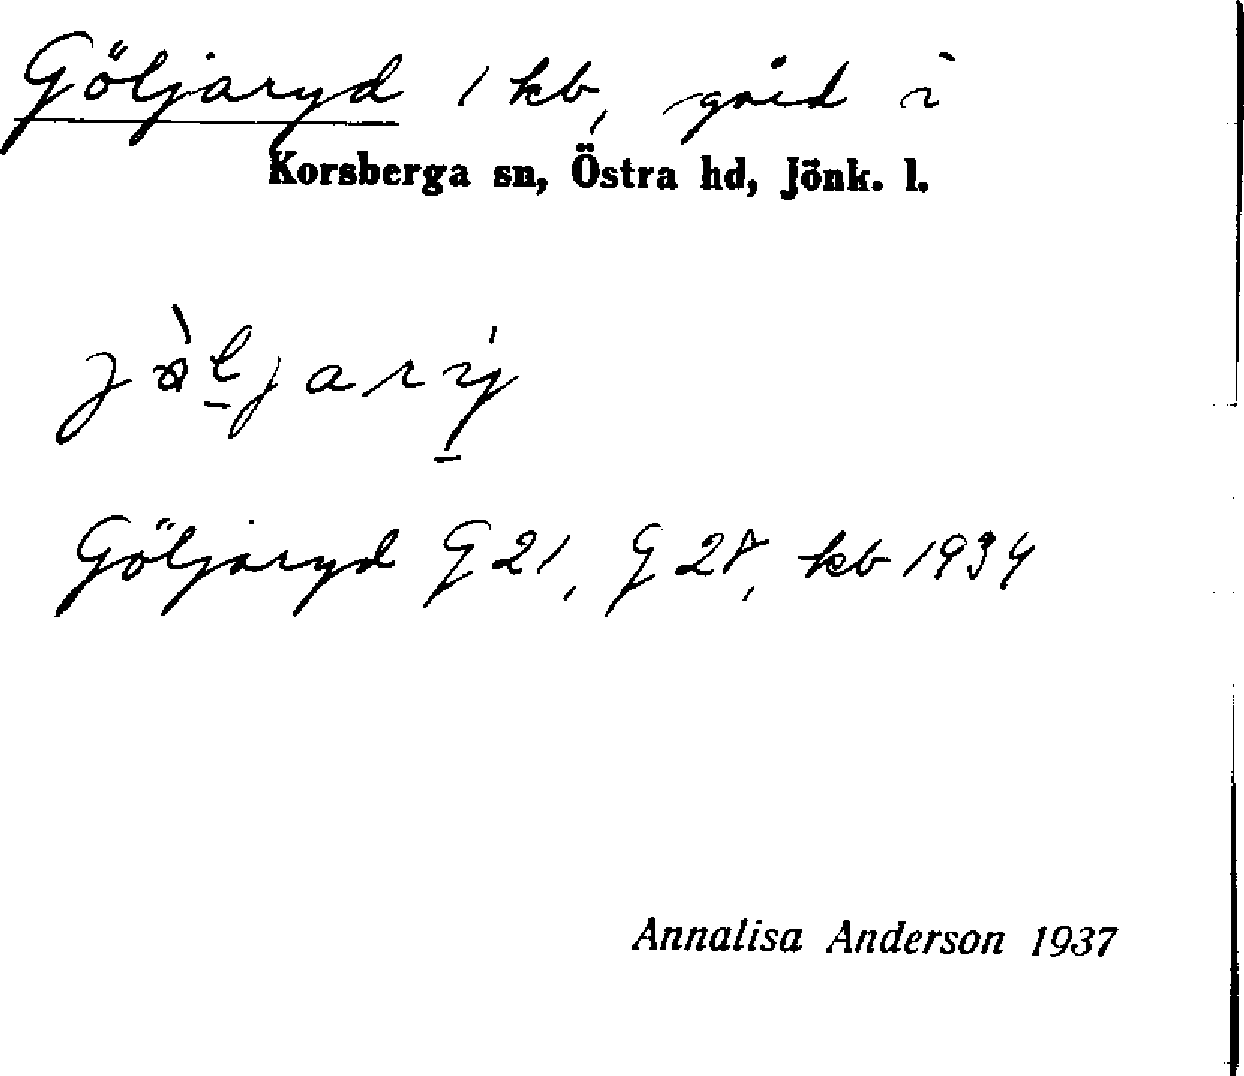 Göljaryd 1 kb, gård i
Korsberga sn, Östra hd, Jönk. l.
Göljaryd G 21, G 28, kb 1934
Annalisa Anderson 1937